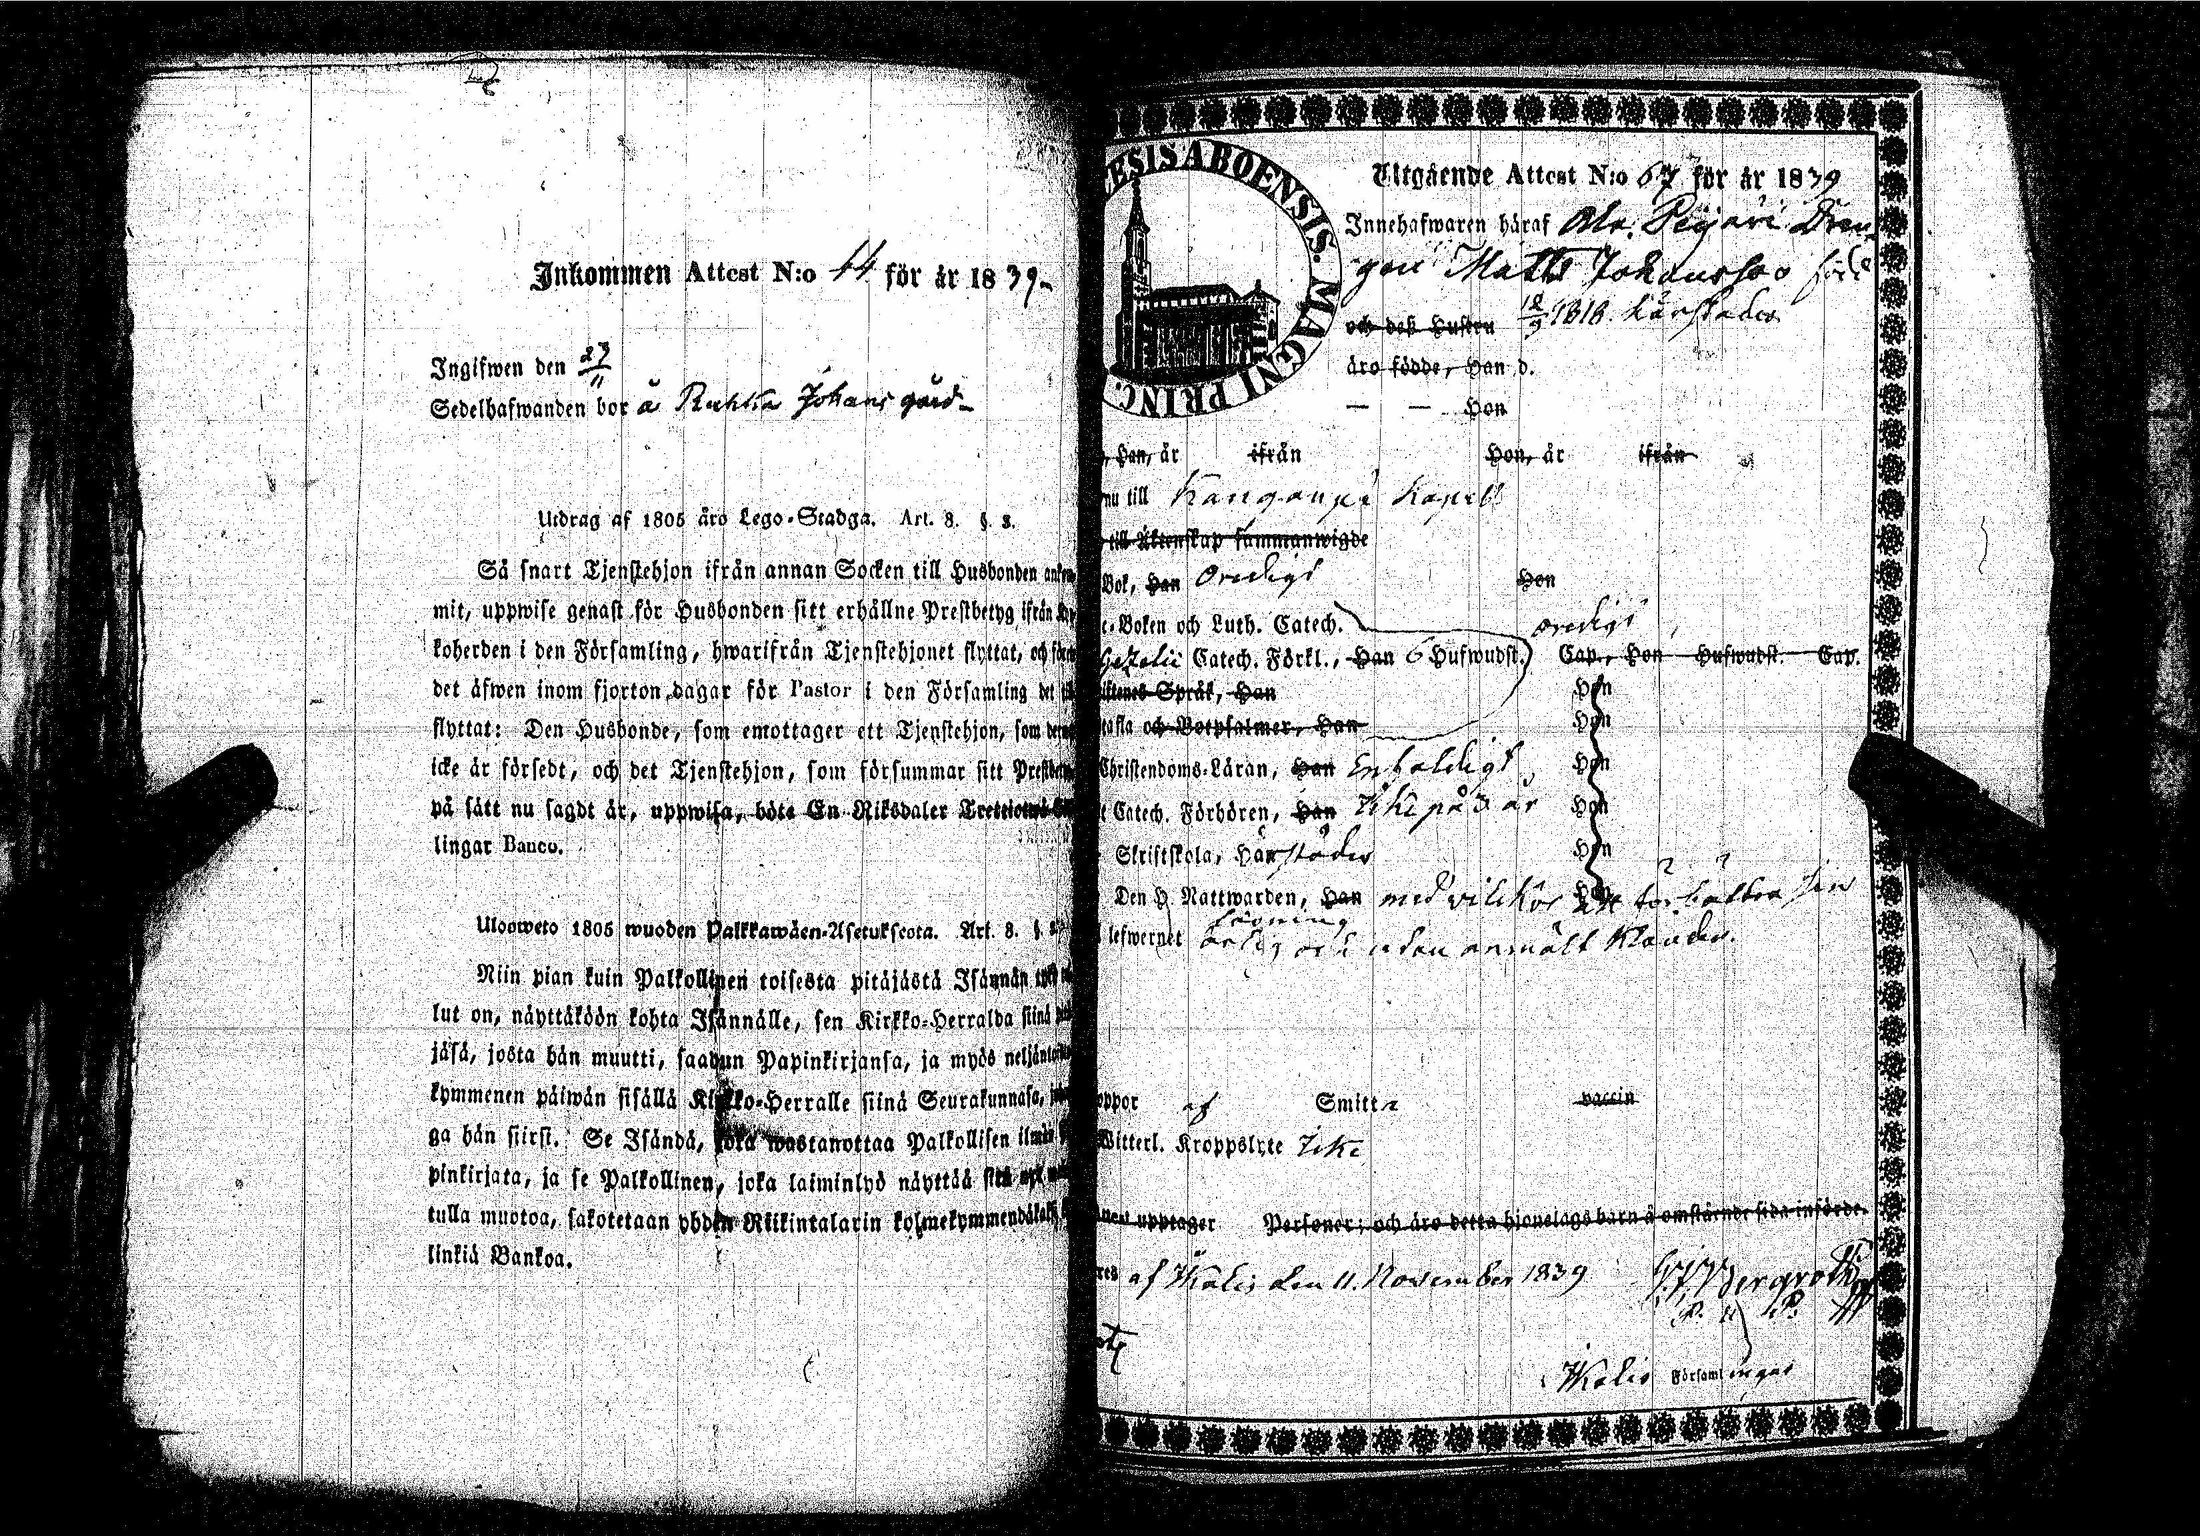 Inkommen Attest N:o 44 för år 1839
Ingifwen den 27/11
Sedelhafwanden bor å Ruhka Johans gård
Utdrag af 1805 åro Lego-Stadga. Art. 8. §. 3.
Så snart Tjenstehjon ifrån annan Socken till Husbonden
mit, uppwise genast för Husbonden sitt erhållne Prestbetyg ifrån
koherden i den Församling, hwarifrån Tjenstehjonet flyttat, och
det åfwen inom fjorton dagar för Pastor i den Församling det
flyttat: Den Husbonde, som emottager ett Tjenstehjon, som
icke är försedt, och det Tjenstehjon, som försummar sitt
på sätt nu sagdt är, uppwisa, böte En Riksdaler
lingar Banco.
Ulosweto 1805 wuoden Palkkawåen-Asetukseota. Art. 8. §.
Niin pian kuin Palkollinen toisesta pitäjästä Isännän
lut on, näyttäköön kohta Isännälle, sen Kirkko-Herralda siinä
jäsä, josta hän muutti, saadun Papinkirjansa, ja myös
kymmenen päiwän sisällä Kirkko-Herralle siinä Seurakunnasa,
ga hän siirst. Se Isändä, joka wastanottaa Palkollisen
pinkirjata, ja se Palkollinen, joka laiminlyö näyttää
tulla muotoa, sakotetaan yhden Riikintalarin
linkiä Bankoa.
ABOENSIS. MAGNI PRINC.
Utgående Attest N:o 67 för år 1839
Innehafwaren häraf Dren
gen Matts Johansson född
och dess Hustru 12/9 1818. härstädes
äro födde, Han d.
— — Hon
Han, år ifrån Hon, år ifrån
nu till Kangonpä Kapell
till Äktenskap sammanwigde
Bok, Han Oredigt Hon
Boken och Luth. Catech. oredigt
Gezelii Catech. Förkl., Han 6 Hufwudst. Cap., Hon Hufwudst. Cap.
Språk, Han Hon
och Botpsalmer, Han Hon
Christendoms-Läran, Han Enfaldigt Hon
Catech. Förhören, Han Icke på 3 år Hon
Skriftskola, Härstädes Hon
Den H. Nattwarden, Han med vilkor att förbättra sin
läsning
lefwernet ärlig och utan anmält klander.
af Smitta vaccin
Witterl. Kroppslyte Icke
upptager Personer; och äro detta hjonelags barn å omstående sida införde.
af Ikalis den 11. November 1839 Bergroth
Ikalis Församlingar